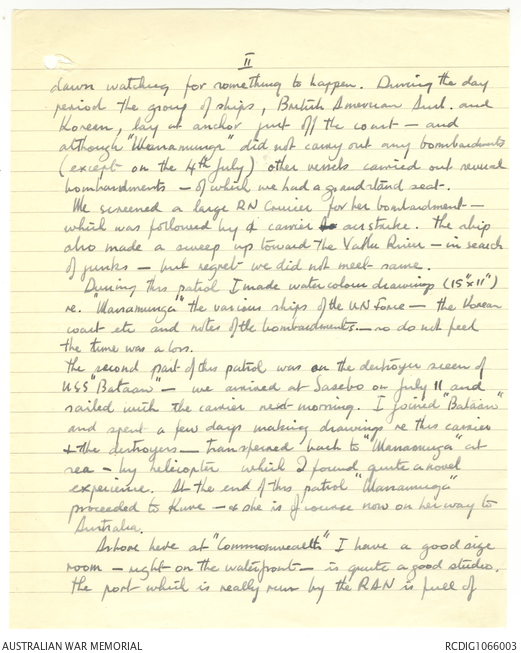 II
dawn watching for something to happen. During the day
period the group of ships, British American Aust. and
Korean, lay at anchor just off the coast – and
although "Warramunga" did not carry out any bombardments
(except on the 4th July) other vessels carried out several
bombardments – of which we had a grandstand seat.
We screened a large RN Cruiser for her bombardment –
which was followed by a carrier air strike. The ship
also made a sweep up toward the Yallu River – in search
of junks – but regret we did not meet same.
During this patrol I made water colour drawings (15"x11")
re. "Warramunga" the various ships of the UN Force – the Korean
coast etc and notes of the bombardments. – so do not feel
the time was a loss.
The second part of this patrol was on the destroyer screen of
USS "Bataan" – we arrived at Sasebo on July 11 and
sailed with the carrier next morning. I joined "Bataan"
and spent a few days making drawings re this carrier
& the destroyers – transferred back to "Warramunga" at
sea – by helicopter which I found quite a novel
experience. At the end of this patrol "Warramunga"
proceeded to Kure – & she is of course now on her way to
Australia.
Ashore here at "Commonwealth" I have a good size
room – right on the waterfront – is quite a good studio.
The port which is really run by the RAN is full of
AUSTRALIAN WAR MEMORIAL
RCDIG1066003